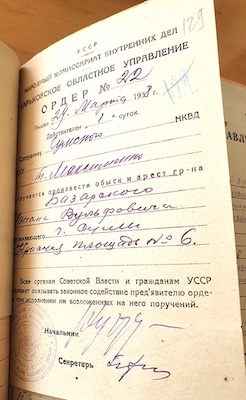 129
УССР
НАРОДНЫЙ КОМИССАРИАТ ВНУТРЕННИХ ДЕЛ
ХАРЬКОВСКОЕ ОБЛАСТНОЕ УПРАВЛЕНИЕ
ОРДЕР № 22
29 Марта 1938 г.
Действителен „1“ суток.
НКВД
Сумского
Сотруднику
т. Максименко
произвести обыск и арест гр-на
Базарского
Вульфовича
г. Сумы
площадь № 6.
Всем органам Советской Власти и гражданам УССР
оказывать законное содействие пред'явителю орде-
исполнении им возложенных на него поручений.
Начальник
Секретарь